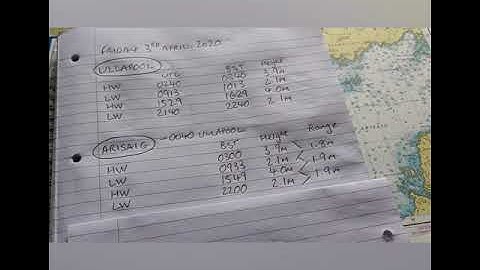 FRIDAY 3RD APRIL 2020
ULLAPOOL
UTC BST Height
HW 0240 0340 3.9m
LW 0913 1013 2.1m
HW 1529 1629 4.0m
LW 2140 2240 2.1m
ARISAIG -0040 ULLAPOOL
BST Height Range
HW 0300 3.9m 1.8m
LW 0933 2.1m 1.9m
HW 1549 4.0m 1.9m
LW 2200 2.1m